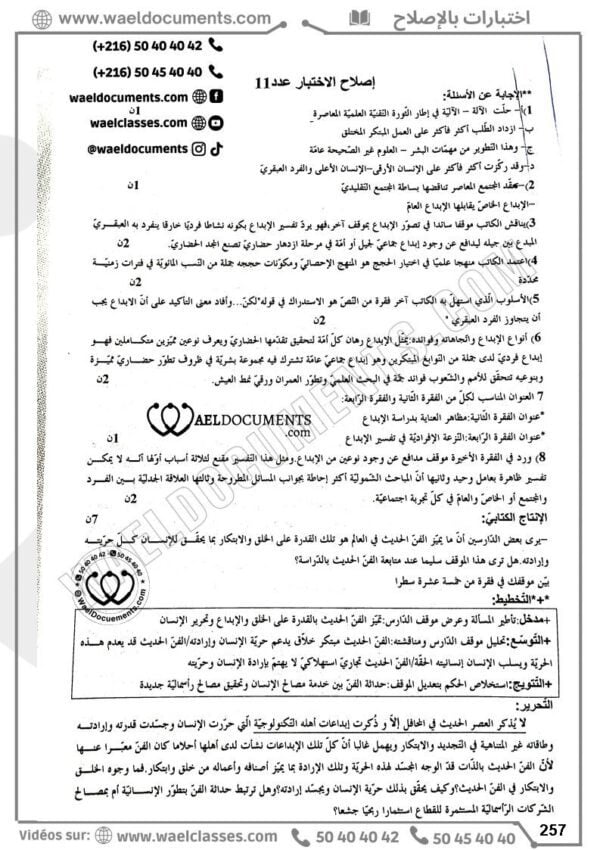 اختبارات بالإصلاح
www.waeldocuments.com
(+216) 50 40 40 42
(+216) 50 45 40 40
waeldocuments.com
waelclasses.com
@waeldocuments
إصلاح الاختبار عدد11
**الإجابة عن الأسئلة:
1ن
1)أ- حلّت الآلة – الآليّة في إطار الثّورة التقنيّة العلميّة المعاصرة
ب- ازداد الطّلب أكثر فأكثر على العمل المبتكر المختلق
ج- وهذا التطوير من مهمّات البشر – العلوم غير الصّحيحة عامّة
د-وقد ركّزت أكثر فأكثر على الإنسان الأرقى-الإنسان الأعلى والفرد العبقريّ
2)-تعقّد المجتمع المعاصر تناقضها بساطة المجتمع التقليديّ 1ن
-الإبداع الخاصّ يقابلها الإبداع العامّ
3)يناقش الكاتب موقفا سائدا في تصوّر الإبداع بموقف آخر،فهو يردّ تفسير الإبداع بكونه نشاطا فرديّا خارقا ينفرد به العبقريّ
المبدع بين جيله ليدافع عن وجود إبداع جماعيّ لجيل أو أمّة في مرحلة ازدهار حضاريّ تصنع المجد الحضاريّ. 2ن
4)اعتمد الكاتب منهجا علميّا في اختيار الحجج هو المنهج الإحصائيّ ومكوّنات حججه جملة من النّسب المائويّة في فترات زمنيّة
محدّدة 2ن
5)الأسلوب الّذي استهلّ به الكاتب آخر فقرة من النّصّ هو الاستدراك في قوله"لكنّ...وأفاد معنى التأكيد على أنّ الابداع يجب
أن يتجاوز الفرد العبقري " 2ن
6) أنواع الإبداع واتجاهاته وفوائده:يمثّل الإبداع رهان كلّ أمّة لتحقيق تقدمها الحضاريّ ويعرف نوعين مميّزين متكاملين فهو
إبداع فرديّ لدى جملة من النّوابغ المبتكرين وهو إبداع جماعيّ عامّة تشترك فيه مجموعة بشريّة في ظروف تطوّر حضاريّ مميّزة
وبنوعيه تتحقّق للأمم والشّعوب فوائد جمّة في البحث العلميّ وتطوّر العمران ورقيّ نمط العيش. 2ن
7 العنوان المناسب لكلّ من الفقرة الثّانية والفقرة الرّابعة:
*عنوان الفقرة الثّانية:مظاهر العناية بدراسة الإبداع
*عنوان الفقرة الرّابعة:النّزعة الإفراديّة في تفسير الإبداع 1ن
WAELDOCUMENTS
.com
8) ورد في الفقرة الأخيرة موقف مدافع عن وجود نوعين من الإبداع.ومثل هذا التفسير مقنع لثلاثة أسباب أوّلها أنّه لا يمكن
تفسير ظاهرة بعامل وحيد وثانيها أنّ المباحث الشّموليّة أكثر إحاطة بجوانب المسائل المطروحة وثالثها العلاقة الجدليّة بين الفرد
والمجتمع أو الخاصّ والعامّ في كلّ تجربة اجتماعيّة. 2ن
الإنتاج الكتابيّ: 7ن
-يرى بعض الدّارسين أنّ ما يميّز الفنّ الحديث في العالم هو تلك القدرة على الخلق والابتكار بما يحقّق للإنسان كلّ حرّيته
وإرادته.هل ترى هذا الموقف سليما عند متابعة الفنّ الحديث بالدّراسة؟
بيّن موقفك في فقرة من خمسة عشرة سطرا
*+*التّخطيط:
+مدخل:تأطير المسألة وعرض موقف الدّارس:تميّز الفنّ الحديث بالقدرة على الخلق والإبداع وتحرير الإنسان
+التّوسّع:تحليل موقف الدّارس ومناقشته:الفنّ الحديث مبتكر خلّاق يدعم حريّة الإنسان وإرادته/الفنّ الحديث قد يعدم هذه
الحريّة ويسلب الإنسان إنسانيته الحقّة/الفنّ الحديث تجاريّ استهلاكيّ لا يهتمّ بإرادة الإنسان وحرّيته
+التّتويج:استخلاص الحكم بتعديل الموقف:حداثة الفنّ بين خدمة مصالح الإنسان وتحقيق مصالح رأسماليّة جديدة
التّحرير:
لا يُذكر العصر الحديث في المحافل إلّا و ذُكرت إبداعات أهله التكنولوجيّة الّتي حرّرت الإنسان وجسّدت قدرته وإرادته
وطاقاته غير المتناهية في التجديد والابتكار ويهمل غالبا أنّ كلّ تلك الإبداعات نشأت لدى أهلها أحلاما كان الفنّ معبّرا عنها
لأنّ الفنّ الحديث بالذّات قدّ الوجه المجسّد لهذه الحريّة وتلك الإرادة بما يميّز أصنافه وأعماله من خلق وابتكار.فما وجوه الخلق
والابتكار في الفنّ الحديث؟وكيف يحقّق بذلك حريّة الإنسان ويجسّد إرادته؟وهل ترتبط حداثة الفنّ بتطوّر الإنسانيّة أم بمصالح
الشّركات الرّأسماليّة المستثمرة للقطاع استثمارا ربحيّا جشعا؟
257
Vidéos sur: www.waelclasses.com 50 40 40 42 50 45 40 40